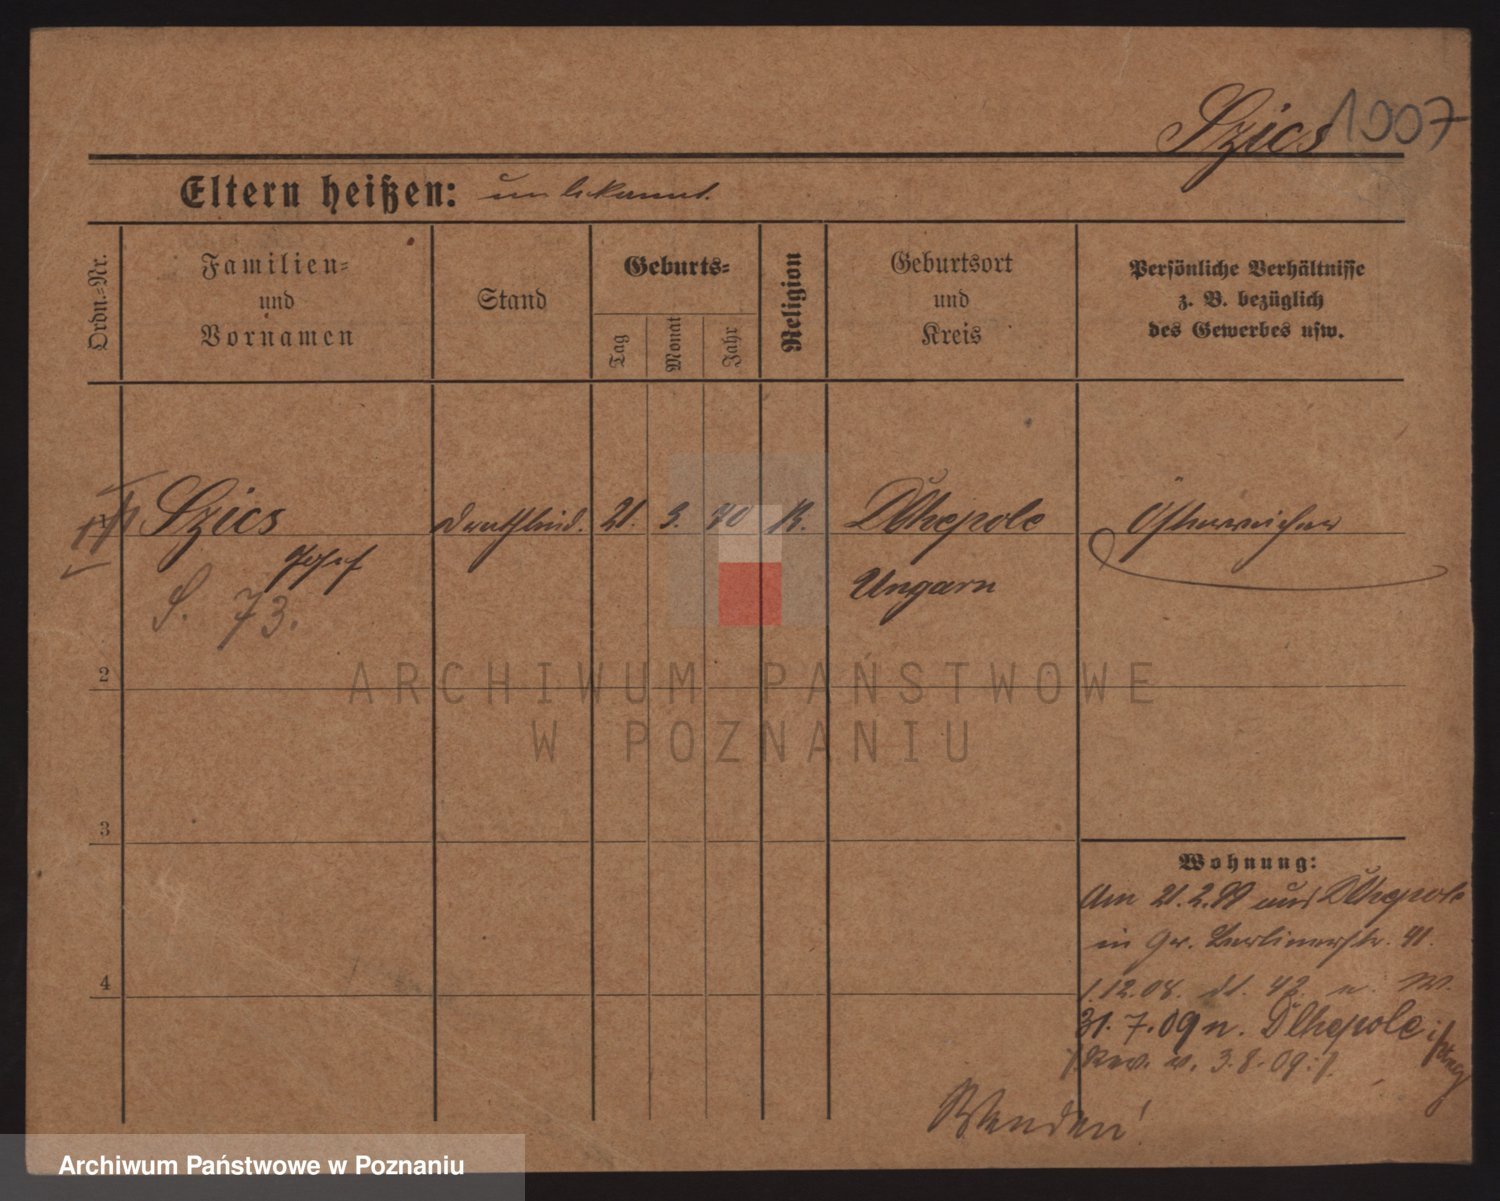 Szics 1907
Eltern heißen: unbekannt.
Ordn.-Nr.
Familien-
und
Vornamen
Stand
Geburts-
Tag
Monat
Jahr
Religion
Geburtsort
und
Kreis
Persönliche Verhältnisse
z. B. bezüglich
des Gewerbes usw.
Szics
Josef
S. 73.
Drathbind. 21. 3. 70 K.
Ungarn
Österreicher
2
ARCHIWUM PAŃSTWOWE
W POZNANIU
3
Wohnung:
Am 21.2.99 aus
in Gr. Berlinerstr. 41.
4
1.12.08. dt. 42 n. W.
31.7.09 n. Dlhepole
Rev. v. 3.8.09
Wenden!
Archiwum Państwowe w Poznaniu